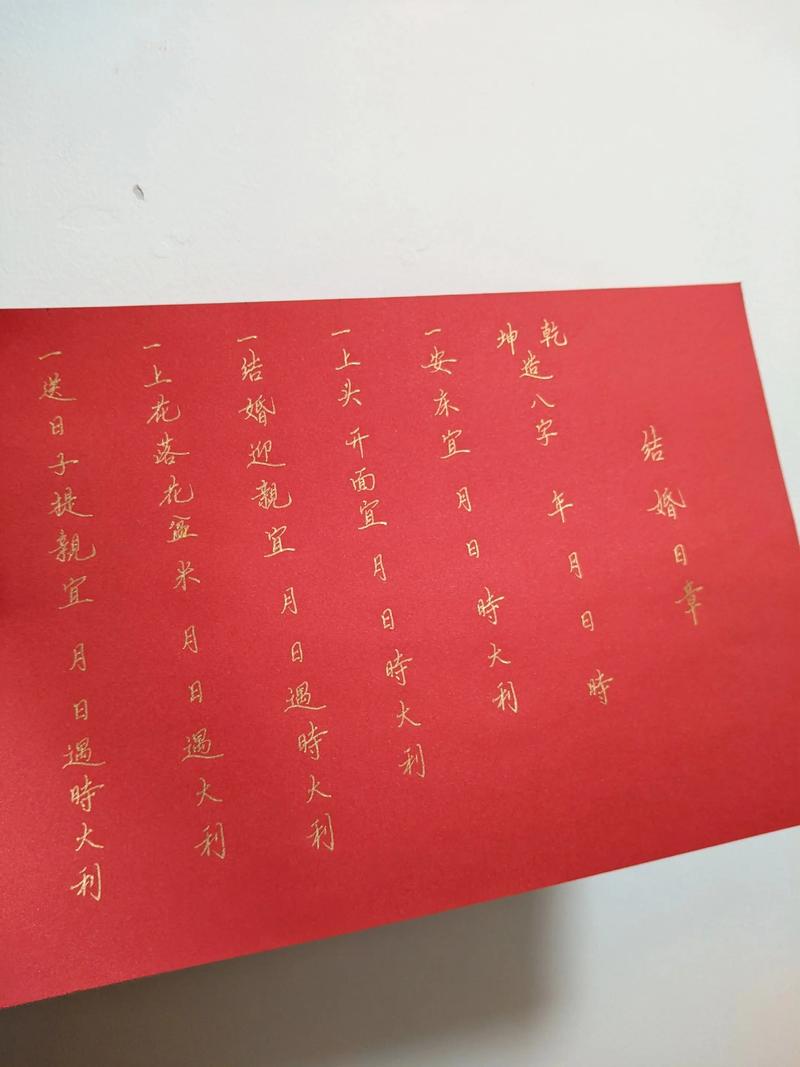 结婚日章
乾坤造八字 年月日时
一安床宜 月日時大利
一上头开面宜 月日時大利
一结婚迎親宜 月日遇時大利
一上花落花盗米 月日遇大利
一送日子提親宜 月日遇時大利